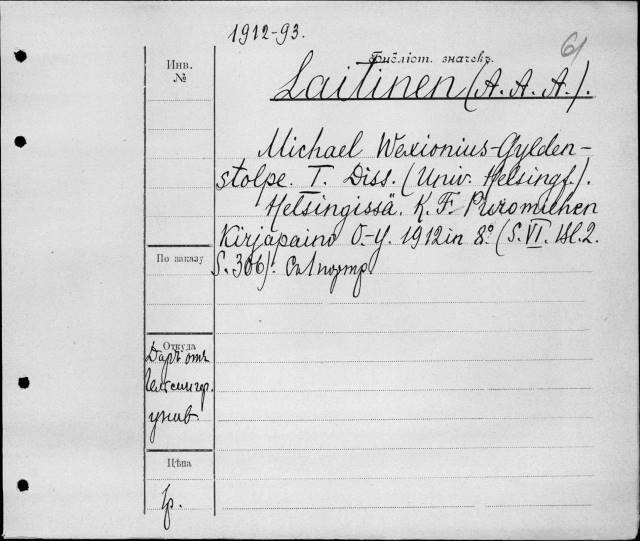 1912-93.
61
Библіот. значекъ.
Инв.
№
Laitinen (A. A. A.).
Michael Wexionius-Gylden-
stolpe. I. Diss. (Univ. Helsingf.).
Helsingissä. K. F. Puromiehen
Kirjapaino O.-Y. 1912 in 8° (S. VI. 1 bl. 2.
S. 306). Съ 1 портр.
По заказу
Откуда
Даръ отъ
Гельсингф.
унив.
Цѣна